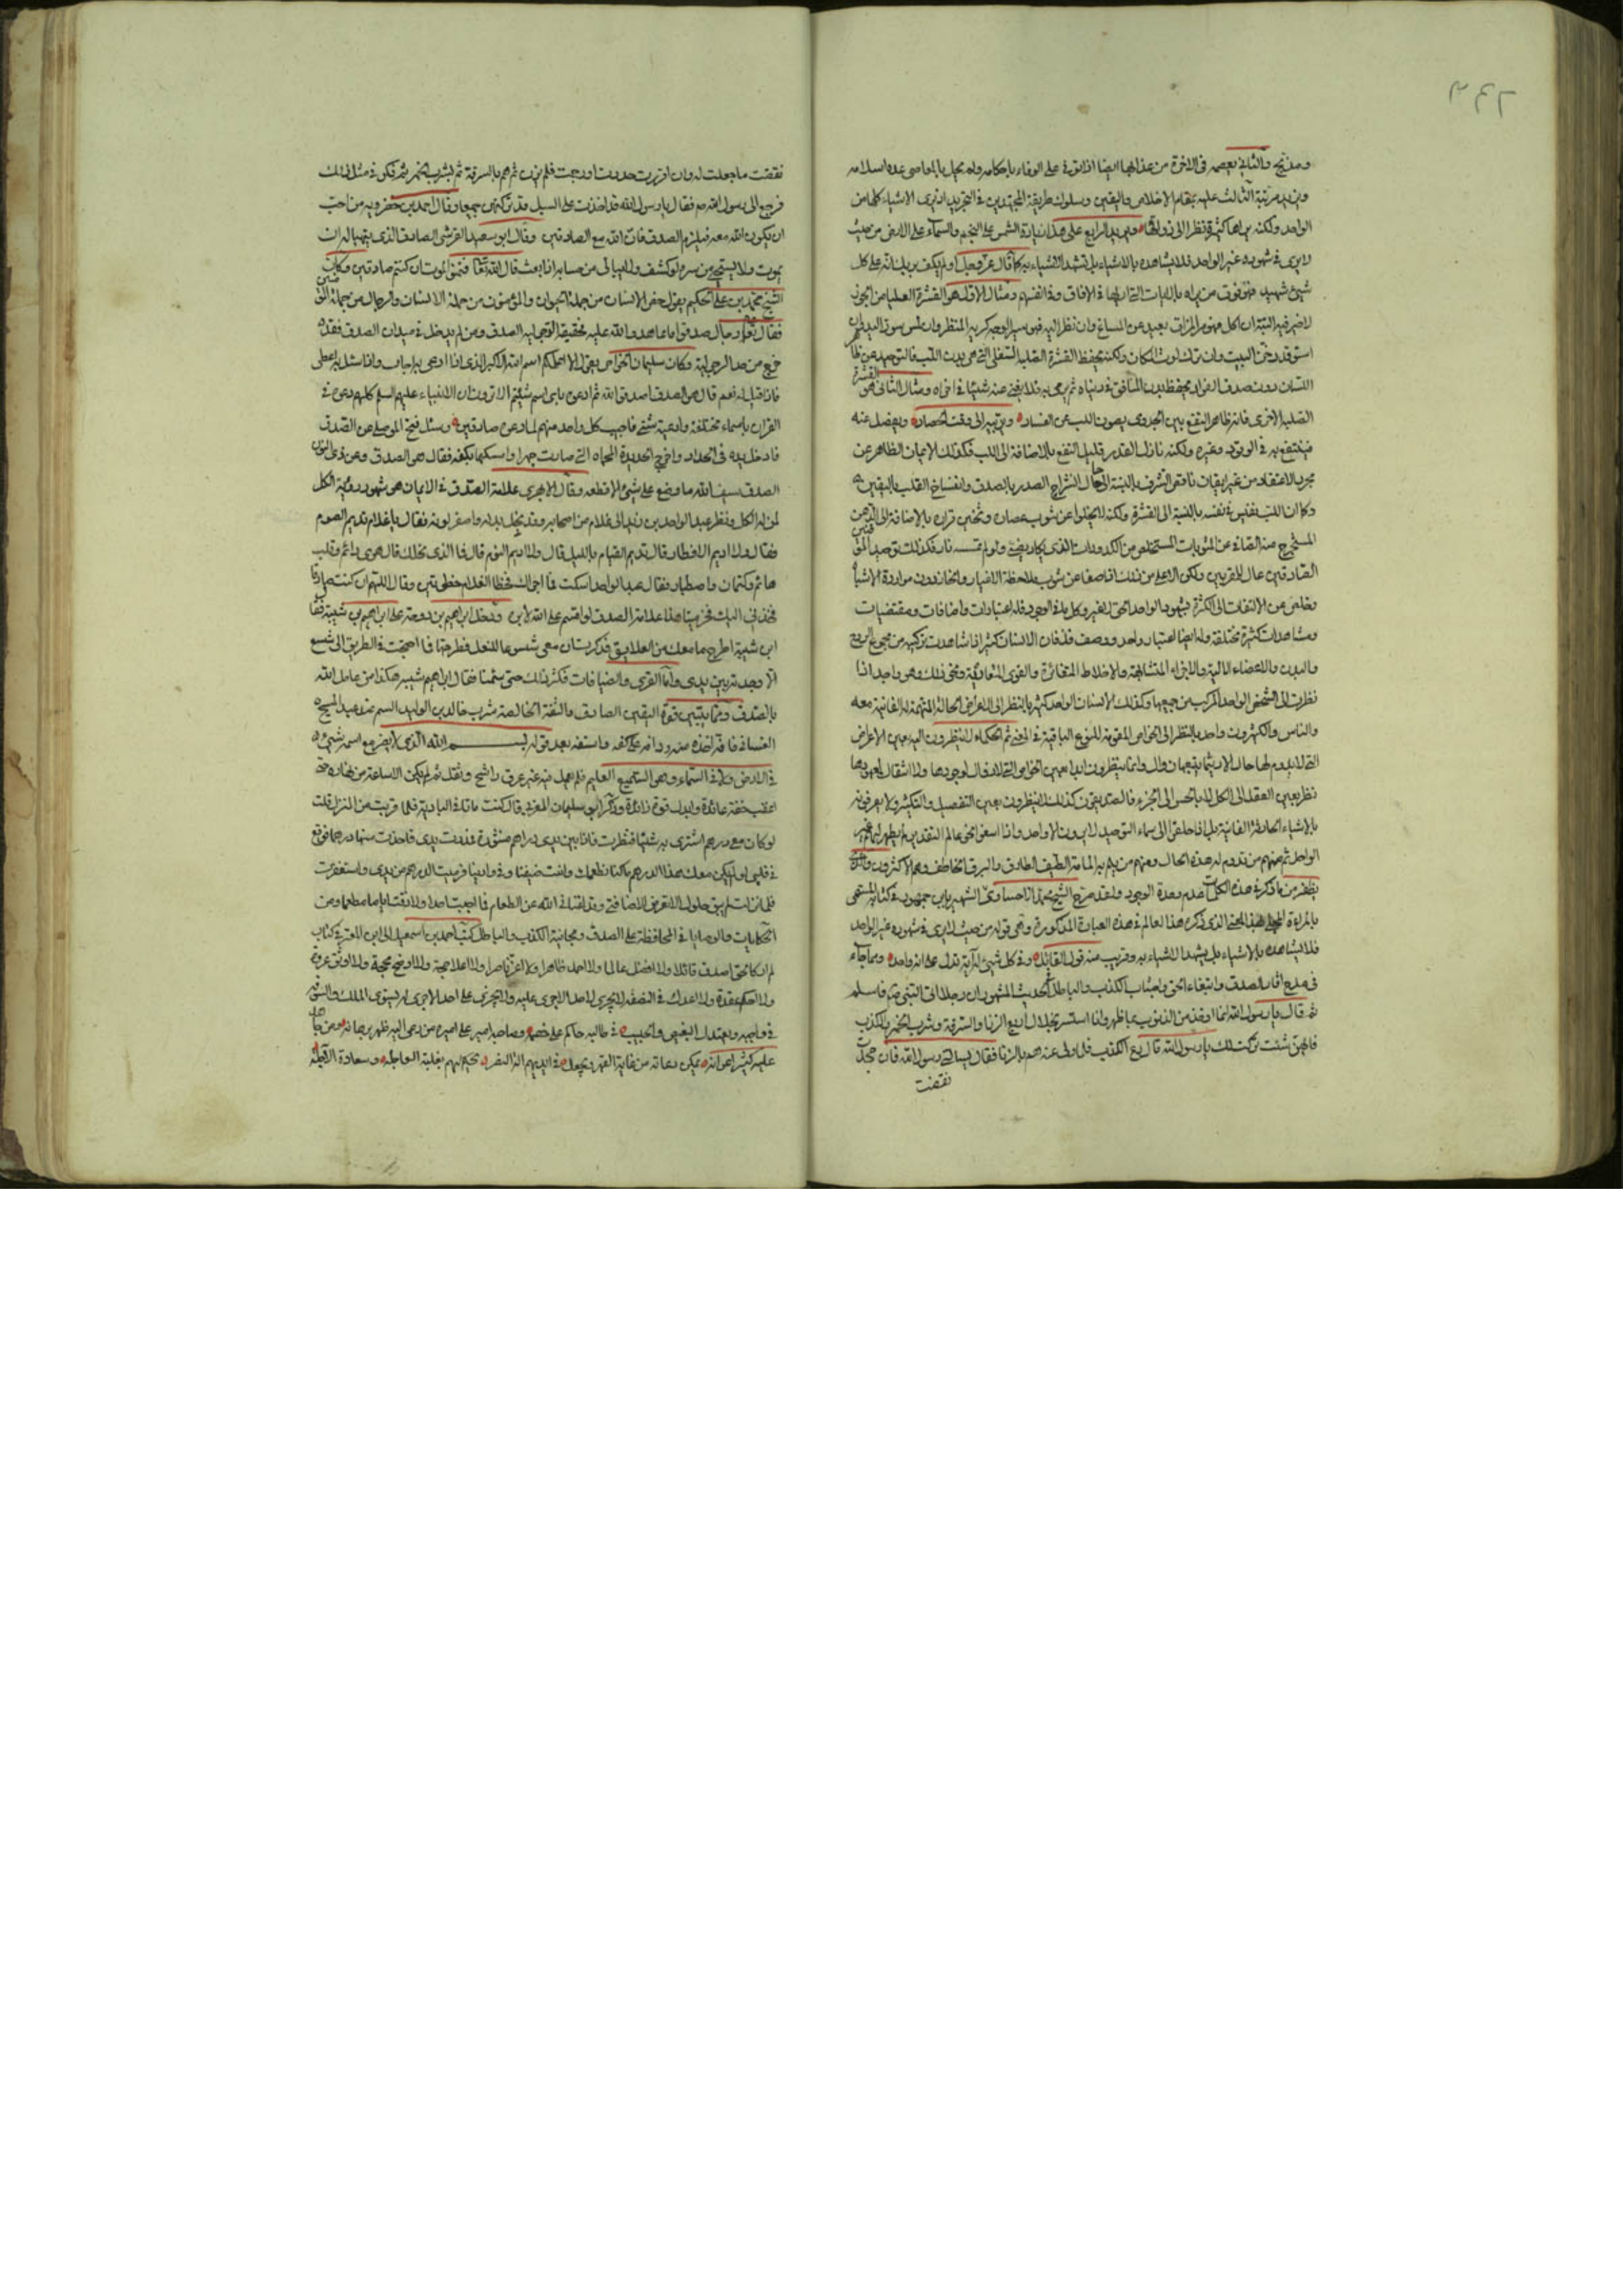 ومذبحه والثاني يعصمه في الاخرة من عذابها ايضا اذا توفي على الوفاء باحكامه ولم يخل بالمعاصي عقد اسلامه
ويزيد مرتبة الثالث عليه بمقام الاخلاص واليقين وسلوك طريقة المجتهدين في التجريد اذ يرى الاشياء كلها من
الواحد ولكنه يراها كثيرة نظرا الى ذواتها ويزيد الرابع على هذا زيادة الشمس على النجم والسماء على الارض من حيث
لا يرى في شهوده غير الواحد فلا يشاهده بالاشياء بل تشهد الاشياء به كما قال عز وجل اولم يكف بربك انه على كل
شيئ شهيد فهو فوق من يراه بالايات التي اراها في الافاق وفي انفسهم ومثال الاول هو القشرة العليا من الجوز
لا خير فيه البتة ان اكل فهو مر المذاق بعيد عن المساغ وان نظر اليه فهو سيئ الوجه كريه المنظر وان
استوقد دخن البيت وان ترك لوث المكان ولكنه يحفظ القشرة الصلبة السفلى التي هي بدن اللب فالتوحيد عن ظاهر
اللسان دون صدق الفؤاد يحفظ بدن المنافق في دنياه ثم يرمى به فلا يغني عنه شيئا في اخراه ومثال الثاني هو القشرة
الصلبة الاخرى فانه ظاهر النفع بين الجدوى يصون اللب عن الفساد ويربيه الى وقت الحصاد ويفصل عنه
فينتفع به في الوقود وغيره ولكنه نازل القدر قليل النفع بالاضافة الى اللب فكذلك الايمان الظاهر عن
مجرد الاعتقاد من غير ايقان ناقص الشرف بالنسبة الى حال انشراح الصدر بالصدق وانفساح القلب باليقين
وكما ان اللب نفيس في نفسه بالنسبة الى القشرة ولكنه لا يخلوا عن شوب عصارة بالاضافة الى الدهن
المستخرج منه الصافي عن المشوبات المستخلص من الكدورات الذي يكاد يضيئ ولو لم تمسسه نار فكذلك توحيد الموقنين
الصادقين عال للمقربين ولكن الاعلى من ذلك ما صفا عن شوب ملاحظة الاغيار دون مواردة الاشياء
وخلص عن الالتفات الى الكثرة لشهود الواحد الحق لا غير وكل ما في الوجود فله اعتبارات واضافات ومقتضيات
ومشاهدات كثيرة مختلفة وله ايضا اعتبار واحد ووصف فذ فان الانسان كثير اذا شاهدت تركيبه من مجموع الروح
والبدن والاعضاء الالية والاجزاء المتشابهة والاخلاط المتغايرة والقوى المتعادية ونحو ذلك وهو واحد اذا
نظرت الى الشخص الواحد المركب من جميعها وكذلك الانسان الواحد كثير بالنظر الى الاعراض الحالة المتممة له الفانية معه
والناس والكثيرون واحد بالنظر الى الخواص المقومة للنوع الباقية في ثم الحكماء لا ينظرون اليه بعين الاعراض
التي لا يدوم لها حال الا ريثما يتبعها زوال وانما ينظرون ابدا بعين الخواص التي لا زوال لوجودها ولا انتقال لعهودها
نظر بعين العقل الى الكل لا بالحس الى الجزء فالصديقون كذلك لا ينظرون بعين التفصيل والتكثير ولا يعرفونه
بالاشياء الحادثة الفانية بل اذا حلقوا الى سماء التوحيد لا يرون الا واحدا واذا اسفوا نحو عالم لم يظهر لهم غير
الواحد ثم منهم من تدوم له هذه الحال ومنهم من يلم به المامة الطيف الطارق والبرق الخاطف وهم الاكثرون والذي
يظهر من ما ذكر في هذه الكلمات عدم وحدة الوجود ولقد صرح الشيخ محمد الاحساوي الشهير بابن جمهور في كتابه المسمى
بالمرآة المجلي بهذا المعنى الذي ذكره هذا العالم في هذه العبارة المذكورة وهي قوله من حيث لا يرى في شهوده غير الواحد
فلا يشاهده بالاشياء بل يشهد الاشياء به وقريب منه قول القائل وفي كل شيئ له آية تدل على انه واحد ومما جاء
في مدح الصدق وابتغاء الحق واجتناب الكذب والباطل الحديث المشهور ان رجلا اتى النبي ص فاسلم
ثم قال يا رسول الله انما اوخذ من الذنوب بما ظهر وانا استسر بخلال اربع الزنا والسرقة وشرب الخمر والكذب
فايهن شئت تركت لك يا رسول الله قال دع الكذب فلما ولى عنه هم بالزنا فقال يسالني رسول الله فان جحدت
نقضت
نقضت ما جعلت له وان اقررت حددت او رجمت فلم يزن ثم هم بالسرقة ثم بشرب الخمر ففكر في مثل ذلك
فرجع الى رسول الله صم فقال يا رسول الله قد اخذت على السبيل قد تركتهن جميعا وقال احمد بن خضرويه من احب
ان يكون الله معه فيلزم الصدق فان الله مع الصادقين وقال ابو سعيد القرشي الصادق الذي يتهيا له ان
يموت ولا يستحي من سره لو كشف ولا يبالي من حسابه اذا بعث قال الله تعالى فتمنوا الموت ان كنتم صادقين وكان
الشيخ محمد بن علي الحكيم يقول خص الانسان من جملة الحيوان والمؤمنون من جملة الانسان والرجال من جملة المؤمنين
فقال تعالى رجال صدقوا ما عاهدوا الله عليه فحقيقة الرجولية الصدق ومن لم يدخل في ميدان الصدق فقد
خرج من حد الرجولية وكان سليمان الخواص يقول الا اعلمكم اسم الله الاكبر الذي اذا دعي به اجاب واذا سئل به اعطى
فاذا قيل له نعم قال هو الصدق اصدق الله ثم ادعوه باي اسم شئتم الا ترون ان الانبياء عليهم السلم كلهم دعوه في
القران باسماء مختلفة وادعية شتى فاجيب كل واحد منهم لما دعوه صادقين وسئل فتح الموصلي عن الصدق
فادخل يده في الحداد واخرج الحديدة المحماة التي صارت جمرا وامسكها بكفه فقال هو الصدق وعن ذي النون
الصدق سيف الله ما وضع على شيئ الا قطعه وقال الابهري علامة الصدق في الايمان هو شهود رؤية الكل
لمن له الكل ونظر عبد الواحد بن زيد الى غلام من اصحابه وقد نحل بدنه واصفر لونه فقال يا غلام تديم الصوم
فقال ولا اديم الافطار قال تديم القيام بالليل قال ولا اديم النوم قال فما الذي نحلك قال هوى دائم وقلب
هائم وكتمان واصطبار فقال عبد الواحد اسكت فما اجراك فخطا الغلام خطوتين وقال اللهم ان كنت صادقا
فخذني اليك فخر ميتا هذا علامة الصدق لو اقسم على الله لابره ودخل ابراهيم بن دوحة على ابراهيم بن شيبة فقال
ابن شيبة اطرح ما معك من العلايق فذكرت ان معي شسوعا للنعل فطرحتها فما احتجت في الطريق الى شسع
الا وجدته بين يدي واما القرى والضيافات فكثر ذلك حتى سئمنا فقال ابراهيم شيبة هكذا من عامل الله
بالصدق ومما يبين قوة اليقين الصادق والثقة الخالصة شرب خالد بن الوليد السم عند عبد المسيح
الغساني فانه اخذه منه ودافه على كفه واستفه بعد قوله بسم الله الذي لا يضر مع اسمه شيئ
في الارض ولا في السماء وهو السميع العليم فلم يعمل فيه غير عرق راشح وثقل ثم لم يكن الا ساعة من نهار حتى
اعقب خفة عائدة وابدل قوة زائدة وذكر ابو سليمان المغربي قال كنت مارا في البادية فلما قربت من المنزل قلت
لو كان معي درهم اشترى به شيئا فنظرت فاذا بين يدي دراهم منثورة فمددت يدي فاخذت منها درهما فوقع
في قلبي لو لم يكن معك هذا الدرهم ما كنا نطعمك وانت ضيفنا وفي وادينا فرميت الدرهم من يدي واستغفرت
فلما نزلت لم يبق حلول الا تعرض لاضافتي وقد اغناني الله عن الطعام فما اجبت احدا ولا ذقت اياما مطعوما ومن
الحكايات والوصايا في المحافظة على الصدق ومجانبة الكذب والباطل كتب احمد بن اسمعيل الى ابن المعتز في كتاب
لم ار كالحق اصدق قائلا ولا افضل عالما ولا احمد ظاهرا ولا اعز ناصرا ولا اعلا حجة ولا اوضح محجة ولا اوثق عروة
ولا احكم عقدة ولا اعدل في النصفة لا يجري لاحد الا جرى عليه ولا يجري على احد الا جرى له يستوي الملك والسوقة
في واجبه ويعتدل البغيض والحبيب في طالبه حاكم على خصمه وصاحبه امير على اميره من دعى اليه ظهر برهانه ومن جاهد
عليه كثر اعوانه يمكن دعاته من غاية القهر ويجعل في ايديهم الة النصر يحكم لهم بغلبة العاجلة وسعادة الآجلة